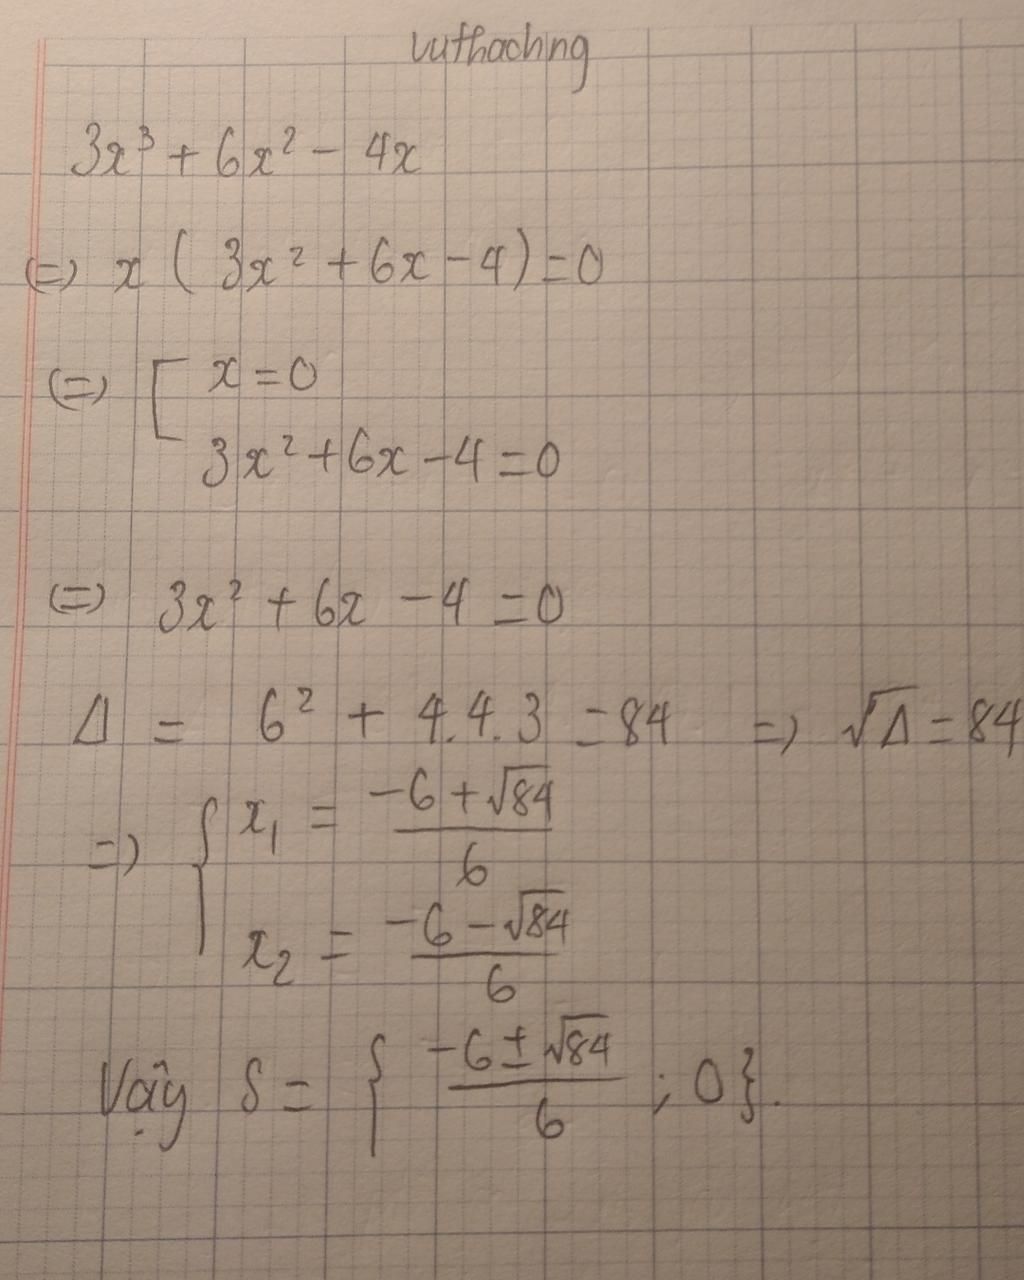 vuthaching
3x³ + 6x² - 4x
(=) x ( 3x² + 6x - 4) = 0
(=) [ x = 0
3x² + 6x - 4 = 0
(=) 3x² + 6x - 4 = 0
Δ = 6² + 4.4.3 = 84 => √Δ = 84
=> { x₁ = (-6 + √84)/6
x₂ = (-6 - √84)/6
Vậy S = { (-6 ± √84)/6 ; 0}.